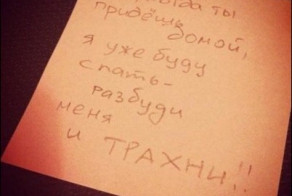 когда ты
придёшь домой,
я уже буду
спать-
разбуди
меня
и ТРАХНИ!!